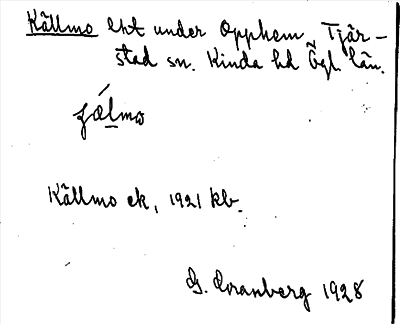 Källmo lht under Opphem Tjär-
stad sn. Kinda hd Ögl. län.
Källmo ek, 1921 kb.
G. Franberg 1928